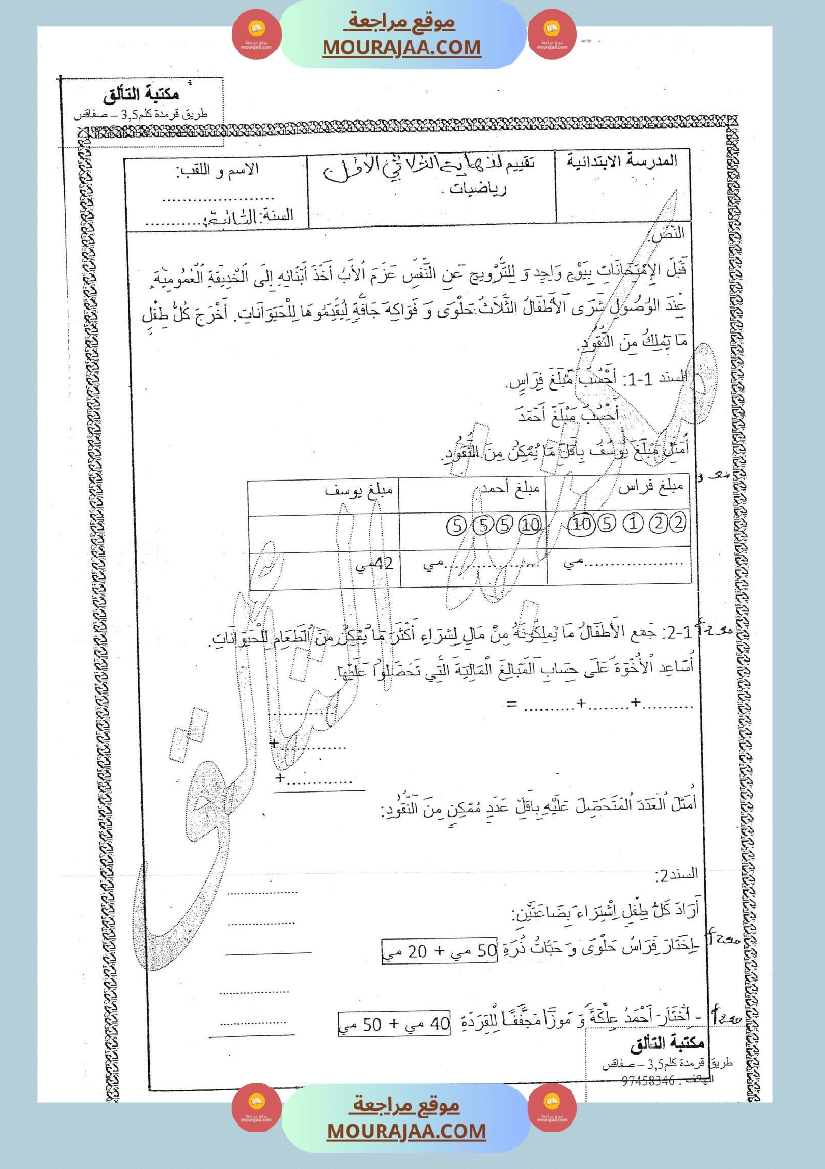 موقع مراجعة
MOURAJAA.COM
مكتبة التألق
طريق قرمدة كلم3,5 – صفاقس
المدرسة الابتدائية
تقييم لنهاية الثلاثي الأول
رياضيات
الاسم و اللقب:
......................
السنة: الثالثة............
النّصّ:
قَبْلَ الِامْتِحَانَاتِ بِيَوْمٍ وَاحِدٍ وَ لِلتَّرْوِيحِ عَنِ النَّفْسِ عَزَمَ الأَبُ أَخَذَ أَبْنَائِهِ إِلَى الْحَدِيقَةِ الْعُمُومِيَّةِ.
عِنْدَ الوُصُولِ شَرَى الأَطْفَالُ الثَّلَاثُ حَلْوَى وَ فَوَاكِهَ جَافَّةٍ لِيُقَدِّمُوهَا لِلْحَيَوَانَاتِ. أَخْرَجَ كُلُّ طِفْلٍ
مَا يَمْلِكُ مِنَ النُّقُودِ.
السند 1-1: أَحْسُبُ مَبْلَغَ فِرَاسٍ.
أَحْسُبُ مَبْلَغَ أَحْمَدَ
أُمَثِّلُ مَبْلَغَ يُوسُفُ بِأَقَلِّ مَا يُمْكِنُ مِنَ النُّقُودِ.
مبلغ فراس
مبلغ أحمد
مبلغ يوسف
10 5 1 2 2
5 5 5 10
...................مي
...................مي
42مي
1-2: جَمَع الأَطْفَالُ مَا يَمْلِكُونَهُ مِنْ مَالٍ لِشِرَاءِ أَكْثَرَ مَا يُمْكِنُ مِنَ الطَّعَامِ لِلْحَيَوَانَاتِ.
أُسَاعِد الأُخْوَةَ عَلَى حِسَابِ الْمَبَالِغَ الْمَالِيَّةَ الَّتِي تَحَصَّلُوا عَلَيْهَا.
..........+........+.......... =
.............
+.............
+.............
أُمَثِّلَ الْعَدَدَ الْمُتَحَصَّلَ عَلَيْهِ بِأَقَلِّ عَدَدٍ مُمْكِنٍ مِنَ النُّقُودُ:
السند2:
أَرَادَ كُلُّ طِفْلٍ اِشْتِرَاءَ بِضَاعَتَيْنِ:
-اِخْتَارَ فِرَاسُ حَلْوَى وَ حَبَّاتُ ذُرَةٍ 50 مي + 20 مي
- اِخْتَارَ أَحْمَدُ عِلْكَةً وَ مَوْزًا مُجَفَّفًا لِلْقِرَدَةِ 40 مي + 50 مي
مكتبة التألق
طريق قرمدة كلم3,5 – صفاقس
الهاتف : 97458346
موقع مراجعة
MOURAJAA.COM